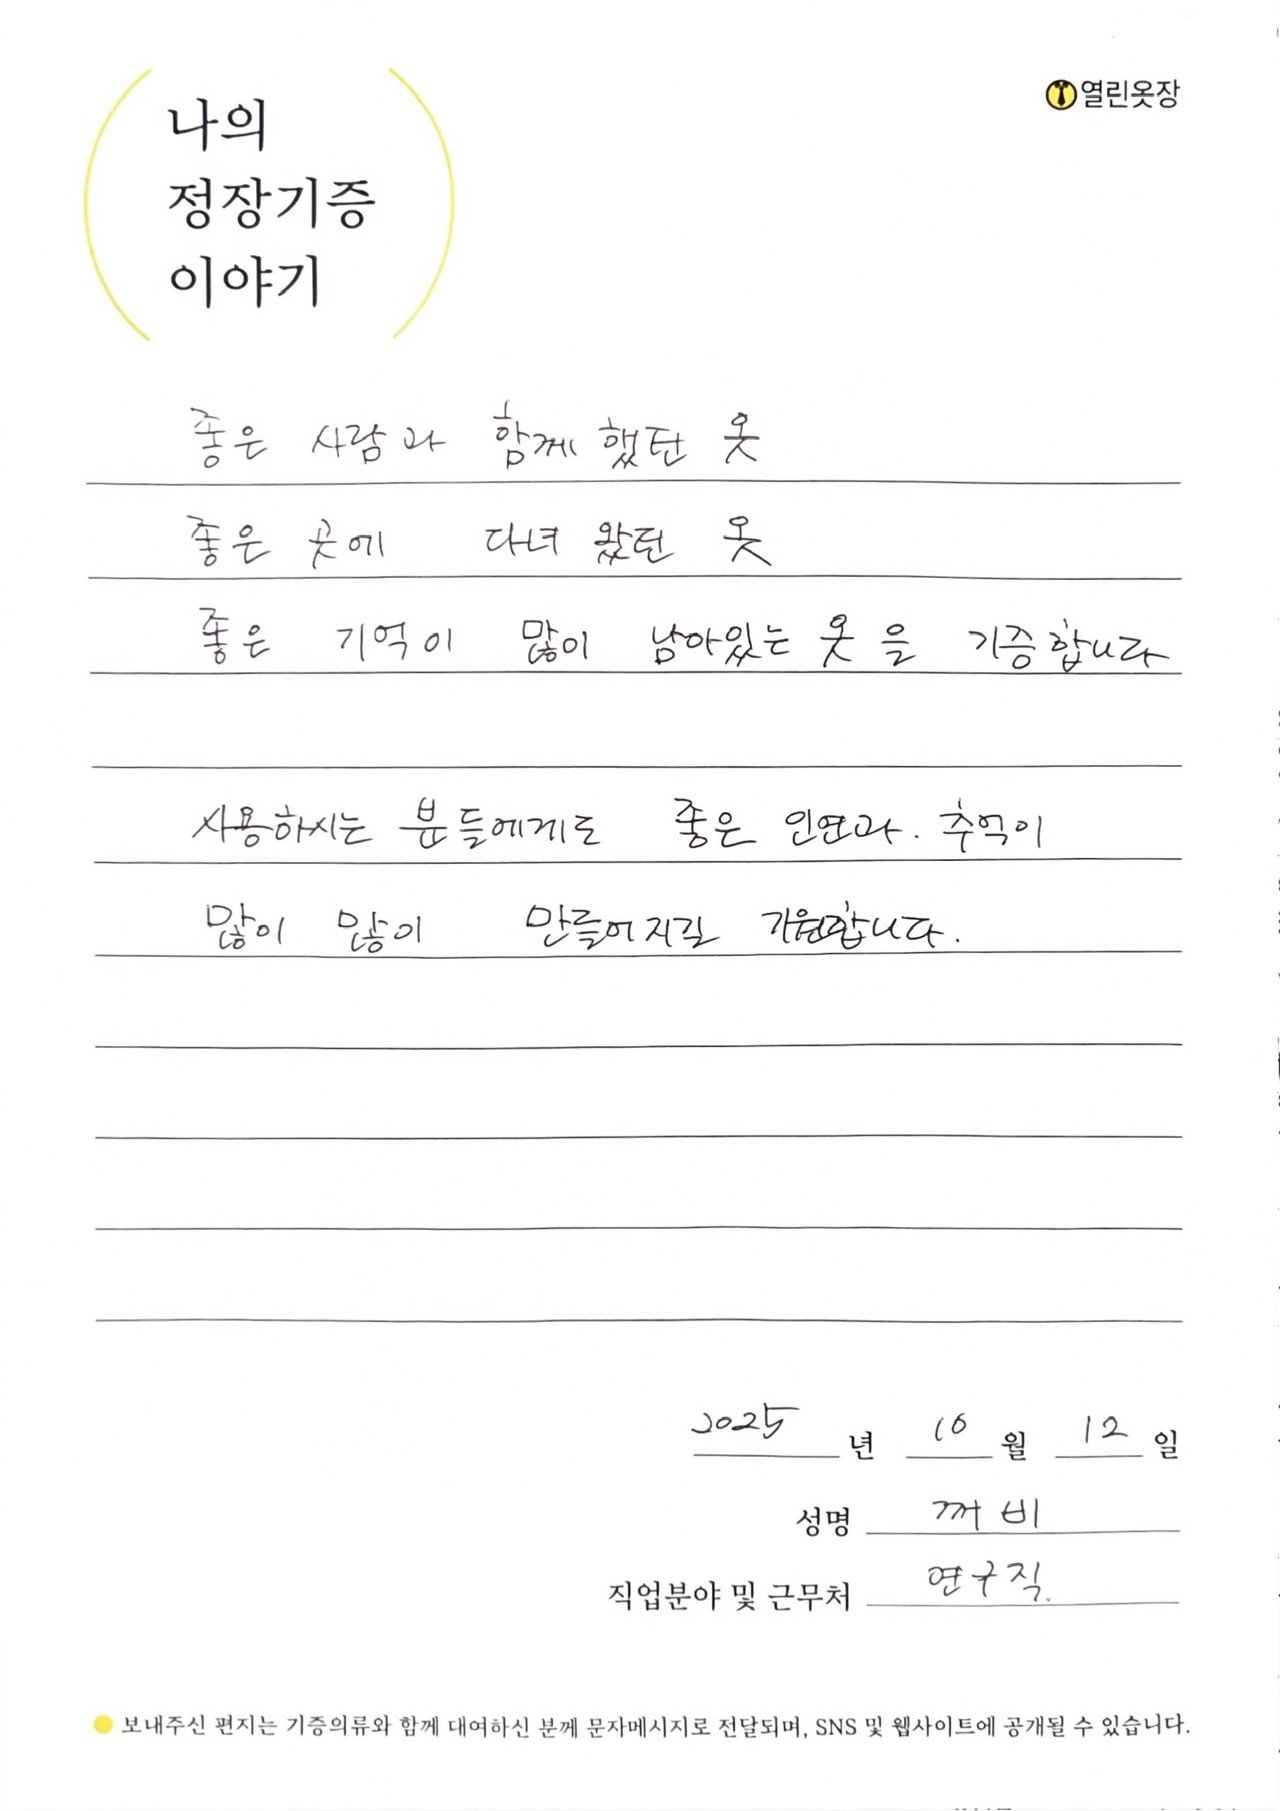 열린옷장
나의
정장기증
이야기
좋은 사람과 함께했던 옷
좋은 곳에 다녀왔던 옷
좋은 기억이 많이 남아있는 옷을 기증합니다
사용하시는 분들에게도 좋은 인연과. 추억이
많이 많이 만들어지길 기원합니다.
2025 년 10 월 12 일
성명 꺼비
직업분야 및 근무처 연구직.
보내주신 편지는 기증의류와 함께 대여하신 분께 문자메시지로 전달되며, SNS 및 웹사이트에 공개될 수 있습니다.